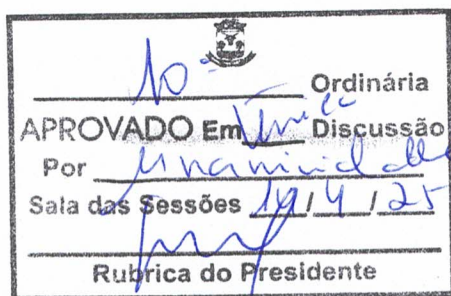 10ª Ordinária
APROVADO Em Única Discussão
Por Unanimidade
Sala das Sessões 14/4/25
Rubrica do Presidente